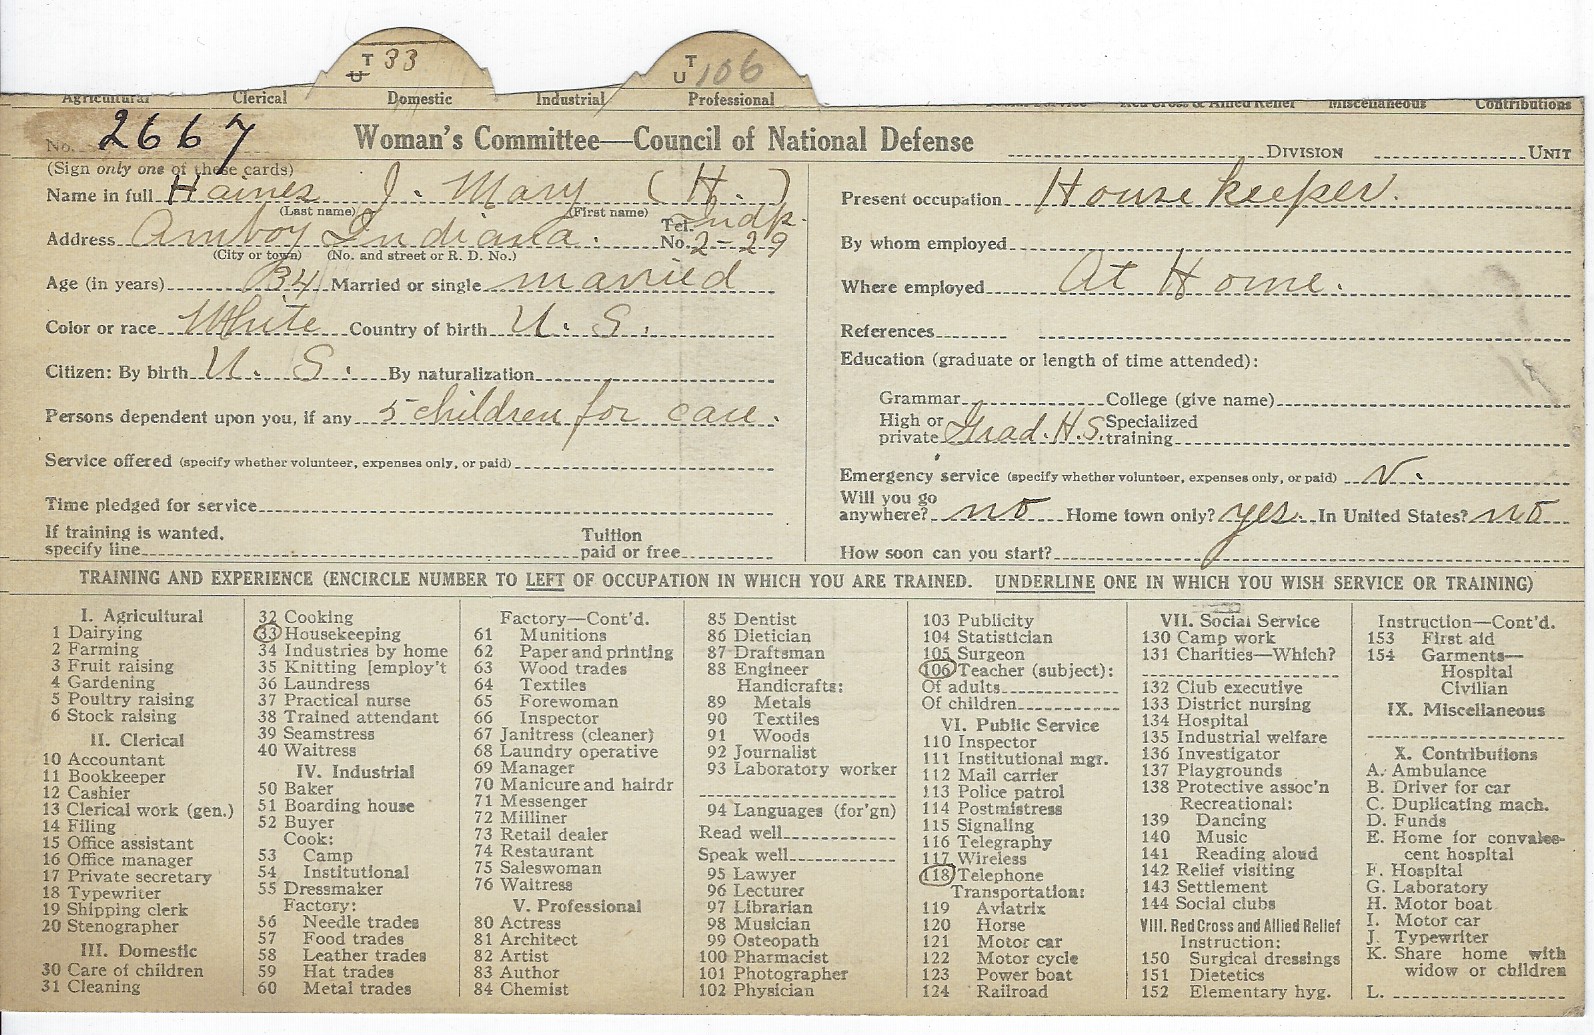 T 33
U
T 106
U
Agricultural Clerical Domestic Industrial Professional Red Cross & Allied Relief Miscellaneous Contributions
No. 2667 Woman's Committee—Council of National Defense DIVISION UNIT
(Sign only one of these cards)
Name in full Haines J. Mary (H.)
(Last name) (First name)
Address Amboy Indiana. Tel. No. Indp. 2-29
(City or town) (No. and street or R. D. No.)
Age (in years) 34 Married or single married
Color or race White Country of birth U. S.
Citizen: By birth U. S. By naturalization
Persons dependent upon you, if any 5 children for care.
Service offered (specify whether volunteer, expenses only, or paid)
Time pledged for service
If training is wanted, specify line Tuition paid or free
Present occupation Housekeeper.
By whom employed
Where employed At Home.
References
Education (graduate or length of time attended):
Grammar College (give name)
High or private Grad. H.S. Specialized training
Emergency service (specify whether volunteer, expenses only, or paid) v.
Will you go anywhere? no Home town only? yes. In United States? no
How soon can you start?
TRAINING AND EXPERIENCE (ENCIRCLE NUMBER TO LEFT OF OCCUPATION IN WHICH YOU ARE TRAINED. UNDERLINE ONE IN WHICH YOU WISH SERVICE OR TRAINING)
I. Agricultural
1 Dairying
2 Farming
3 Fruit raising
4 Gardening
5 Poultry raising
6 Stock raising
II. Clerical
10 Accountant
11 Bookkeeper
12 Cashier
13 Clerical work (gen.)
14 Filing
15 Office assistant
16 Office manager
17 Private secretary
18 Typewriter
19 Shipping clerk
20 Stenographer
III. Domestic
30 Care of children
31 Cleaning
32 Cooking
33 Housekeeping
34 Industries by home
35 Knitting [employ't
36 Laundress
37 Practical nurse
38 Trained attendant
39 Seamstress
40 Waitress
IV. Industrial
50 Baker
51 Boarding house
52 Buyer
Cook:
53 Camp
54 Institutional
55 Dressmaker
Factory:
56 Needle trades
57 Food trades
58 Leather trades
59 Hat trades
60 Metal trades
Factory—Cont'd.
61 Munitions
62 Paper and printing
63 Wood trades
64 Textiles
65 Forewoman
66 Inspector
67 Janitress (cleaner)
68 Laundry operative
69 Manager
70 Manicure and hairdr
71 Messenger
72 Milliner
73 Retail dealer
74 Restaurant
75 Saleswoman
76 Waitress
V. Professional
80 Actress
81 Architect
82 Artist
83 Author
84 Chemist
85 Dentist
86 Dietician
87 Draftsman
88 Engineer
Handicrafts:
89 Metals
90 Textiles
91 Woods
92 Journalist
93 Laboratory worker
94 Languages (for'gn)
Read well
Speak well
95 Lawyer
96 Lecturer
97 Librarian
98 Musician
99 Osteopath
100 Pharmacist
101 Photographer
102 Physician
103 Publicity
104 Statistician
105 Surgeon
106 Teacher (subject):
Of adults
Of children
VI. Public Service
110 Inspector
111 Institutional mgr.
112 Mail carrier
113 Police patrol
114 Postmistress
115 Signaling
116 Telegraphy
117 Wireless
118 Telephone
Transportation:
119 Aviatrix
120 Horse
121 Motor car
122 Motor cycle
123 Power boat
124 Railroad
VII. Social Service
130 Camp work
131 Charities—Which?
132 Club executive
133 District nursing
134 Hospital
135 Industrial welfare
136 Investigator
137 Playgrounds
138 Protective assoc'n
Recreational:
139 Dancing
140 Music
141 Reading aloud
142 Relief visiting
143 Settlement
144 Social clubs
VIII. Red Cross and Allied Relief
Instruction:
150 Surgical dressings
151 Dietetics
152 Elementary hyg.
Instruction—Cont'd.
153 First aid
154 Garments—
Hospital
Civilian
IX. Miscellaneous
X. Contributions
A. Ambulance
B. Driver for car
C. Duplicating mach.
D. Funds
E. Home for convales-
cent hospital
F. Hospital
G. Laboratory
H. Motor boat
I. Motor car
J. Typewriter
K. Share home with
widow or children
L.